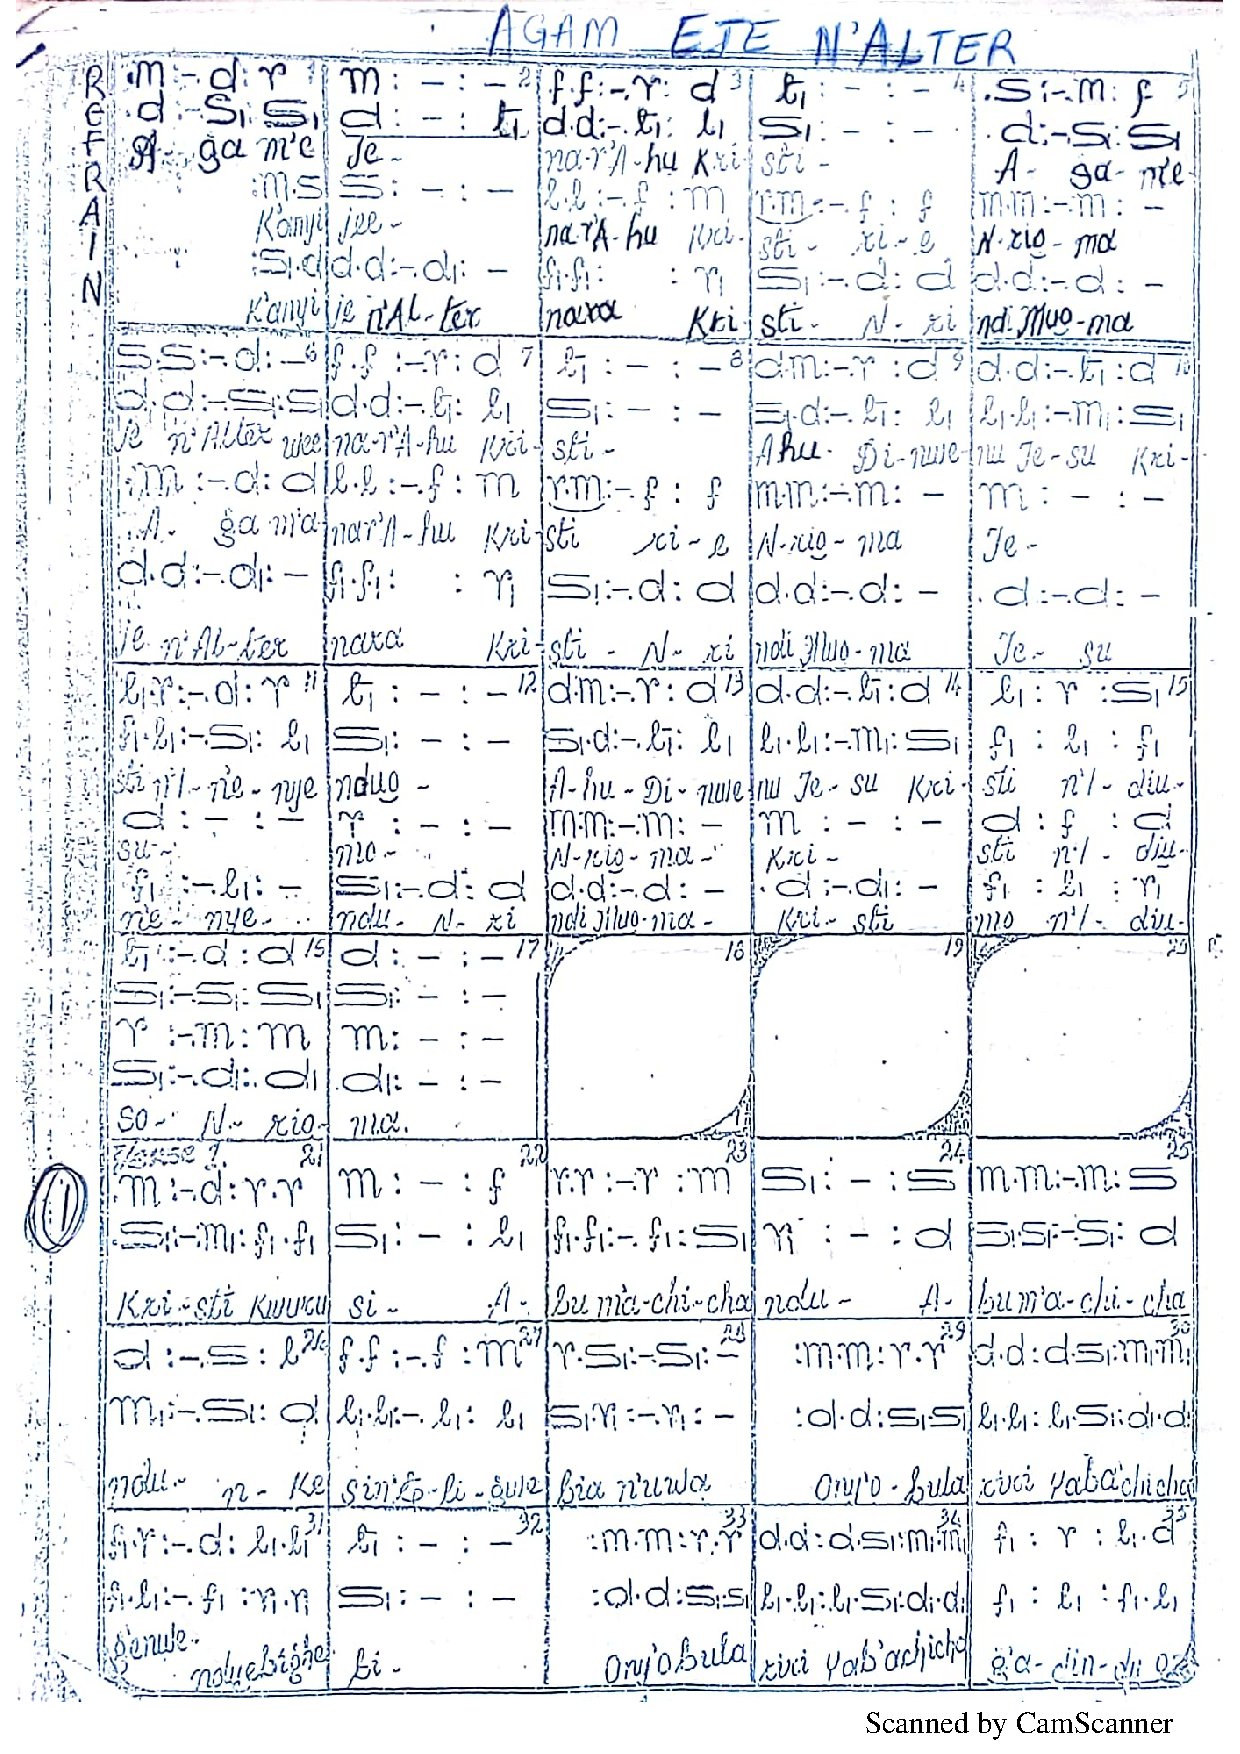 AGAM EJE N'ALTER
REFRAIN
.m:-.d:r 1 m:-:- 2 f.f:-.r:d 3 t₁:-:- 4 .s:-.m:f 5
.d:-.s₁:s₁ d:-:t₁ d.d:-.t₁:l₁ s₁:-:- .d:-.s₁:s₁
A- ga m'e Je- na-r'A-hu Kri sti- A- ga-m'e-
:m.s s:-:- l.l:-.f:m r.m:-.f:f m.m:-.m:-
Kanyi jee- na-r'A-hu Kri- sti- ri-e N-rio-ma
:s₁.d d.d:-.d₁:- f₁.f₁: :r₁ s₁:-.d:d d.d:-.d:-
Kanyi je n'Al-ter nara Kri sti- N-ri ndi Muo-ma
s.s:-.d:- 6 f.f:-.r:d 7 t₁:-:- 8 d.m:-.r:d 9 d.d:-.t₁:d 10
d.d:-.s₁.s₁ d.d:-.t₁:l₁ s₁:-:- s₁.d:-.t₁:l₁ l₁.l₁:-.m₁:s₁
je n'Alter wee na-r'A-hu Kri- sti- Ahu- Di-nwe- nu Je-su Kri-
.m:-.d:d l.l:-.f:m r.m:-.f:f m.m:-.m:- m:-:-
A- ga m'a- nar'A-hu Kri- sti ri-e N-rio-ma Je-
d.d:-.d₁:- f₁.f₁: :r₁ s₁:-.d:d d.d:-.d:- .d:-.d:-
je n'Al-ter nara Kri- sti- N-ri ndi Muo-ma Je- su
l₁.r:-.d:r 11 t₁:-:- 12 d.m:-.r:d 13 d.d:-.t₁:d 14 l₁:r:s₁ 15
f₁.l₁:-.s₁:l₁ s₁:-:- s₁.d:-.t₁:l₁ l₁.l₁:-.m₁:s₁ f₁:l₁:f₁
sti n'I-ne-nye nduo- A-hu-Di-nwe nu Je-su Kri- sti n'I-diu-
d:-:- r:-:- m.m:-.m:- m:-:- d:f:d
su- mo- N-rio-ma- Kri- sti n'I-diu-
f₁:-.l₁:- s₁:-.d:d d.d:-.d:- .d:-.d₁:- f₁:l₁:r₁
ne-nye- ndu- N-ri ndi Muo-ma- Kri-sti mo n'I-diu-
t₁:-.d:d 15 d:-:- 17 18 19 20
s₁:-.s₁:s₁ s₁:-:-
r:-.m:m m:-:-
s₁:-.d₁:d₁ d₁:-:-
so- N-rio- ma.
21 22 23 24 25
.m:-.d:r.r m:-:f r.r:-.r:m s₁:-:s m.m:-.m:s
.s₁:-.m₁:f₁.f₁ s₁:-:l₁ f₁.f₁:-.f₁:s₁ r₁:-:d s₁.s₁:-.s₁:d
Kri-sti Kwuru si- A- bu m'a-chi-cha ndu- A- bu m'a-chi-cha
d:-.s:l 26 f.f:-.f:m 27 r.s₁:-.s₁:- 28 :m.m:r.r 29 d.d:d.s₁:m₁.m₁ 30
m₁:-.s₁:d l₁.l₁:-.l₁:l₁ s₁.r₁:-.r₁:- :d.d:s₁.s₁ l₁.l₁:l₁.s₁:d₁.d₁
ndu- n-ke bia n'uwa Ony'o-bula
f₁.r:-.d:l₁.l₁ 31 t₁:-:- 32 :m.m:r.r 33 d.d:d.s₁:m₁.m₁ 34 f₁:r:l₁.d 35
f₁.l₁:-.f₁:r₁.r₁ s₁:-:- :d.d:s₁.s₁ l₁.l₁:l₁.s₁:d₁.d₁ f₁:l₁:f₁.l₁
bi- Ony'obula g'a-din-du
1
Scanned by CamScanner